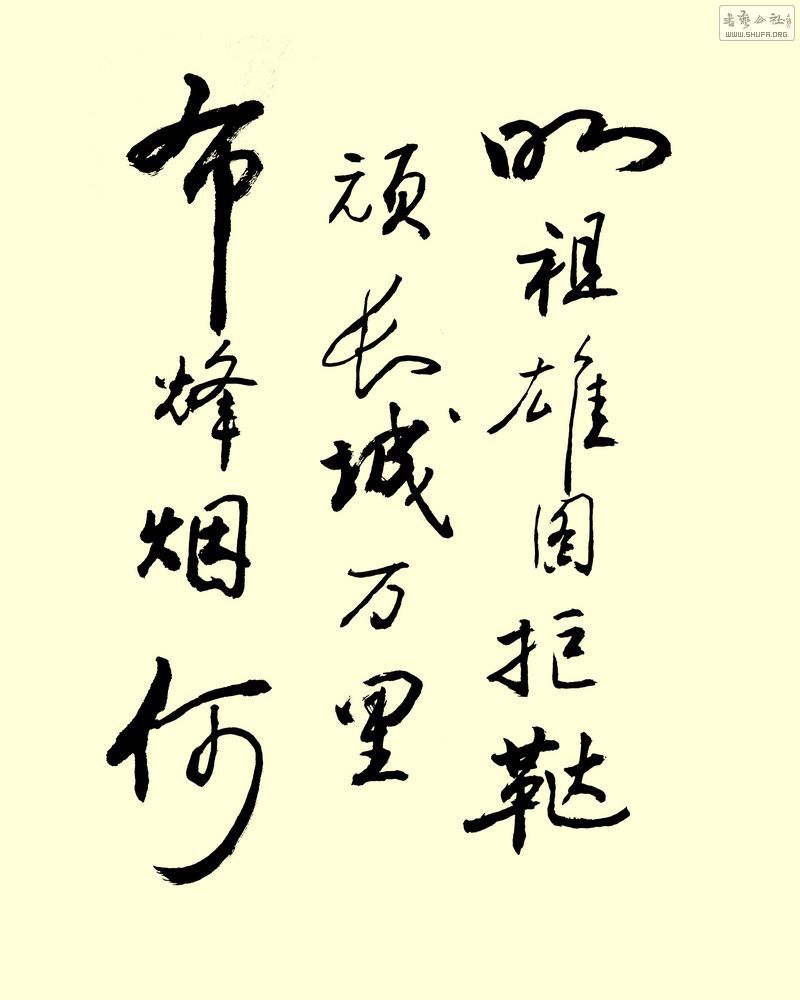 明祖雄图拒鞑
顽长城万里
布烽烟何
书艺公社
WWW.SHUFA.ORG